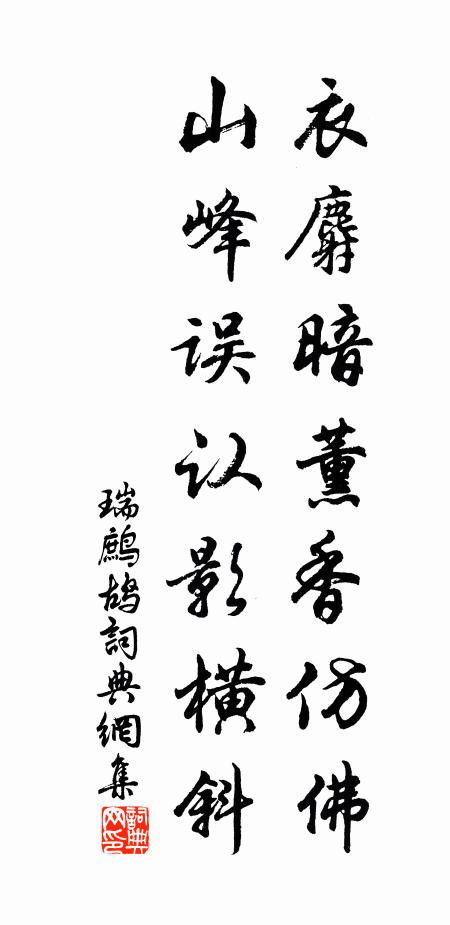 衣麝暗薰香仿佛
山峰误认影横斜
瑞鷓鴣詞典網集
詞典网印